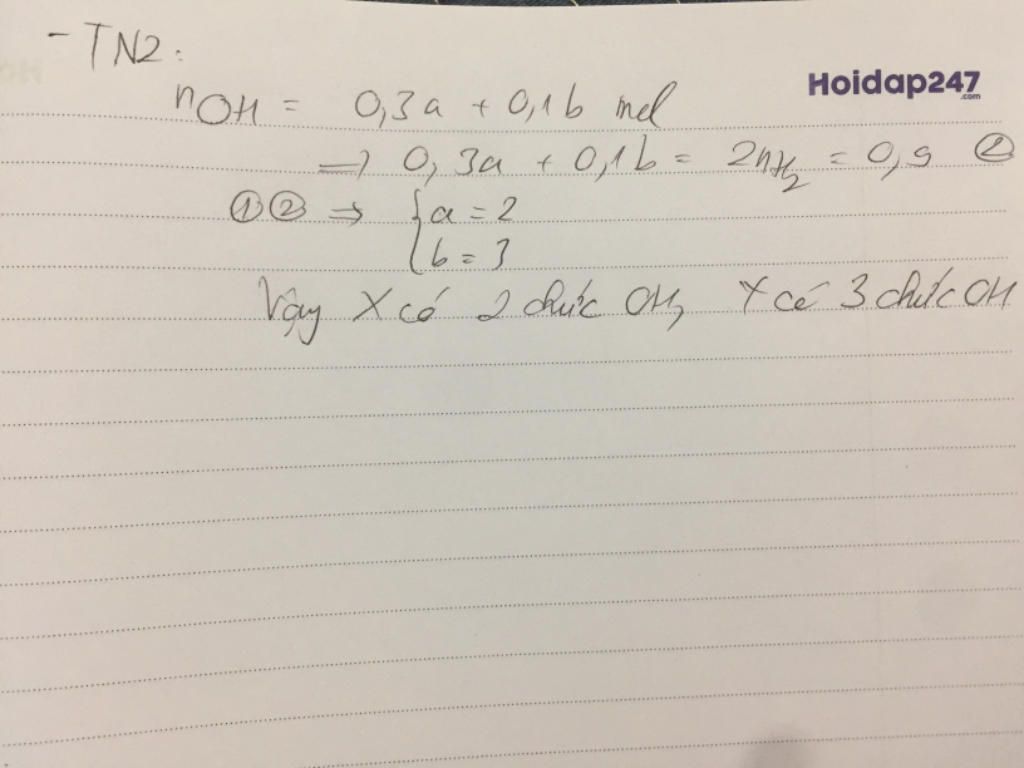 - TN2:
Hoidap247
.com
nOH = 0,3a + 0,1b mol
=> 0,3a + 0,1b = 2nH2 = 0,9 ②
①② => { a = 2
b = 3
Vậy X có 2 chức OH, Y có 3 chức OH